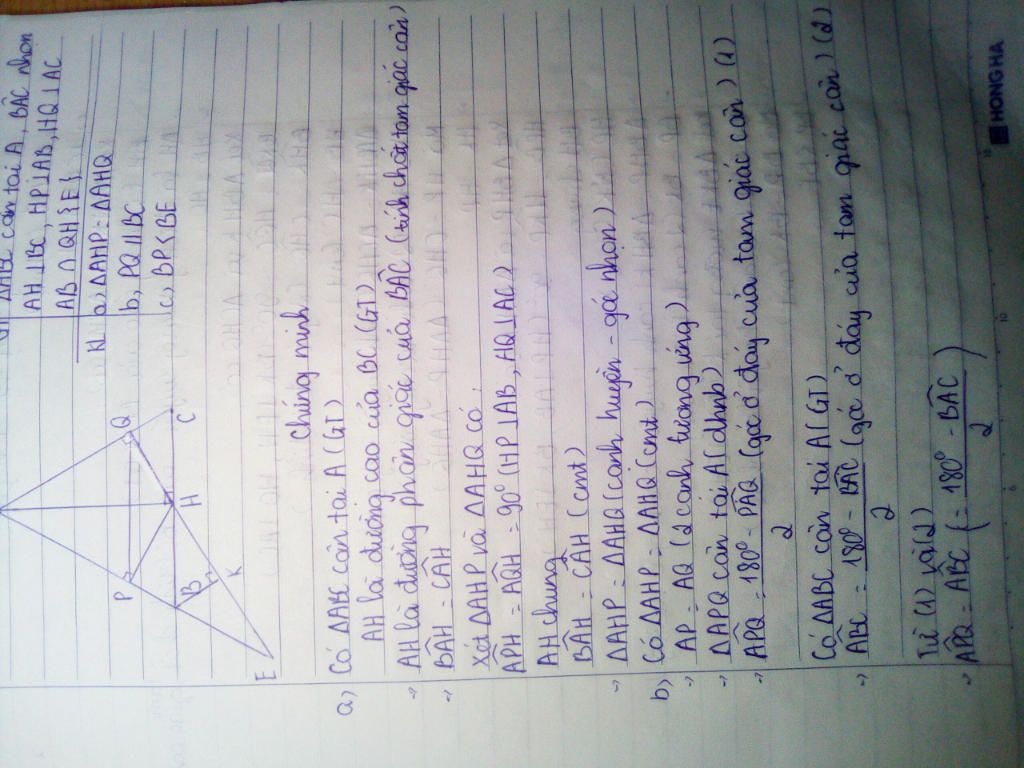 ΔABC cân tại A, BAC nhọn
AH⊥BC, HP⊥AB, HQ⊥AC
AB ∩ QH {E}
KL
a, ΔAHP = ΔAHQ
b, PQ // BC
c, BP < BE
P
Q
B
H
C
K
E
Chứng minh
a) Có ΔABC cân tại A (GT)
AH là đường cao của BC (GT)
→ AH là đường phân giác của BAC (tính chất tam giác cân)
→ BAH = CAH
Xét ΔAHP và ΔAHQ có:
APH = AQH = 90° (HP⊥AB, HQ⊥AC)
AH chung
BAH = CAH (cmt)
→ ΔAHP = ΔAHQ (cạnh huyền - góc nhọn)
b) Có ΔAHP = ΔAHQ (cmt)
→ AP = AQ (2 cạnh tương ứng)
→ ΔAPQ cân tại A (dhnb)
→ APQ = 180° - PAQ / 2 (góc ở đáy của tam giác cân) (1)
Có ΔABC cân tại A (GT)
→ ABC = 180° - BAC / 2 (góc ở đáy của tam giác cân) (2)
Từ (1) và (2)
→ APQ = ABC (= 180° - BAC / 2)
HONG HA